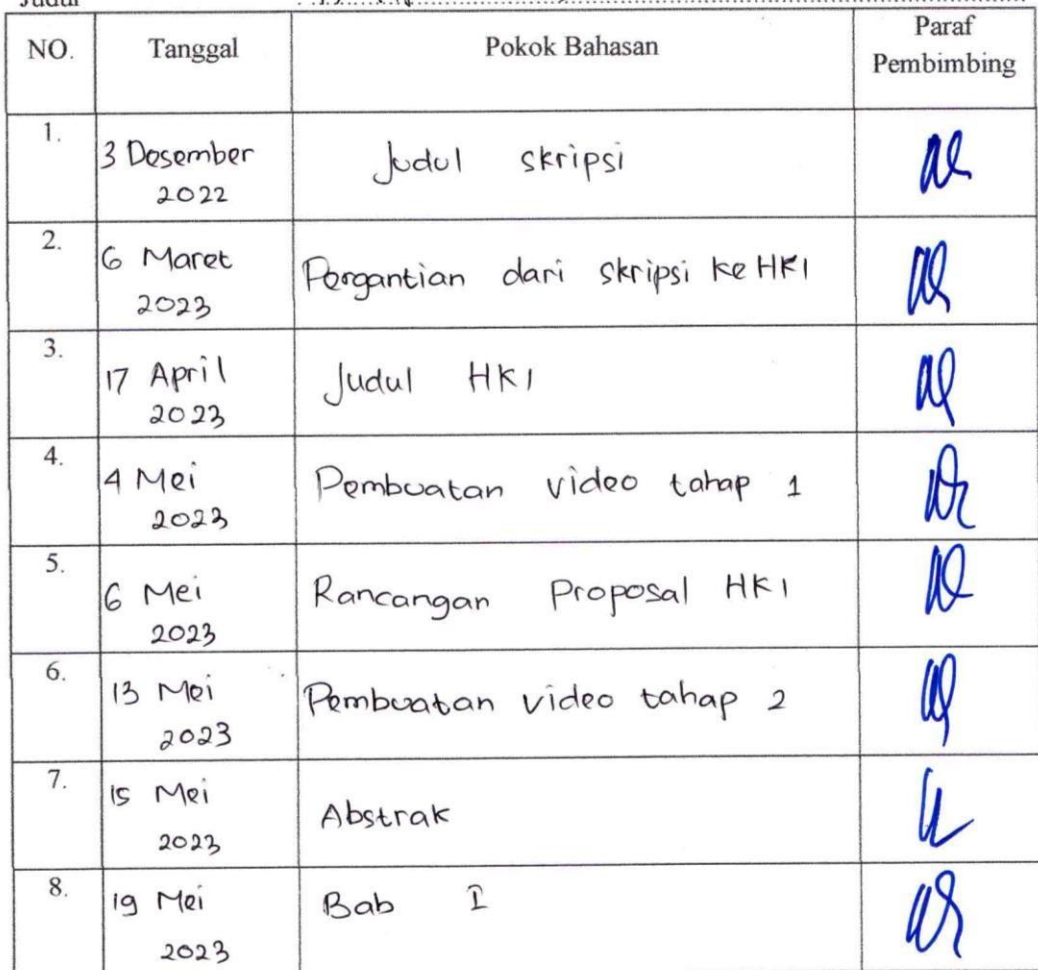 Judul
NO. Tanggal Pokok Bahasan Paraf
Pembimbing
1. 3 Desember
2022 Judul skripsi
2. 6 Maret
2023 Pergantian dari skripsi ke HKI
3. 17 April
2023 Judul HKI
4. 4 Mei
2023 Pembuatan video tahap 1
5. 6 Mei
2023 Rancangan Proposal HKI
6. 13 Mei
2023 Pembuatan video tahap 2
7. 15 Mei
2023 Abstrak
8. 19 Mei
2023 Bab I